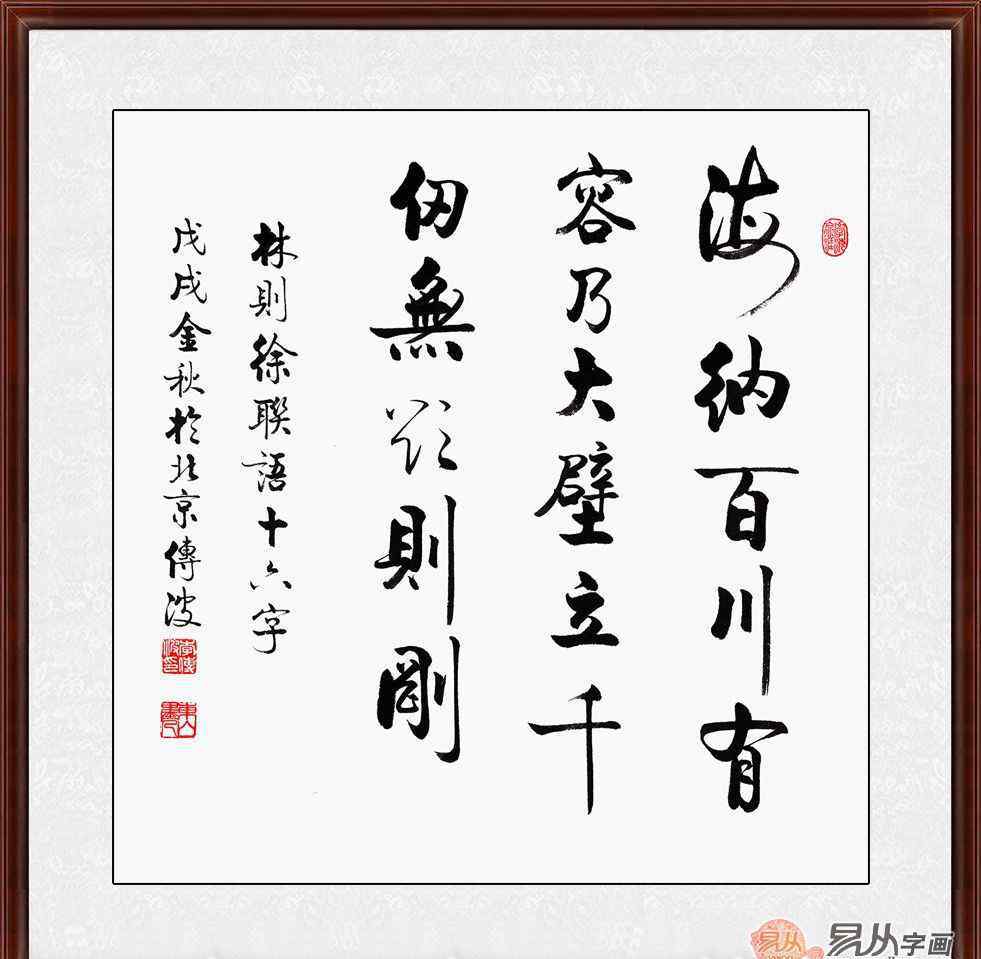 海納百川有
容乃大壁立千
仞無欲則剛
林則徐聯語十六字
戊戌金秋於北京傳波
易从字画